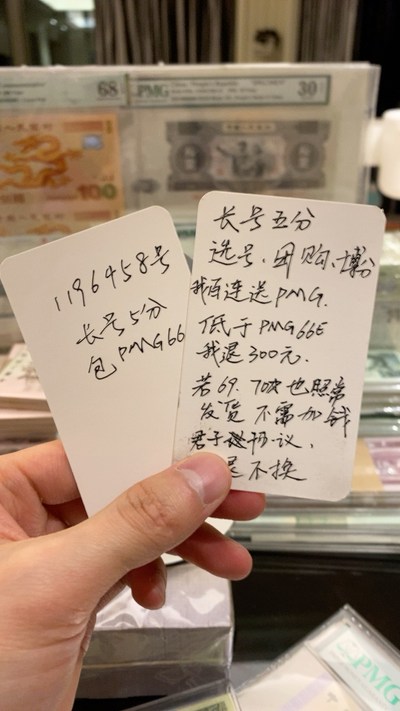 68
PMG
30
100
1196458号
长号5分
包PMG66
长号五分
选号、团购、博分
我百连送PMG.
低于PMG66E
我退300元.
若69.70次也照常
发货 不需加钱
君子协议、
不换
PMG